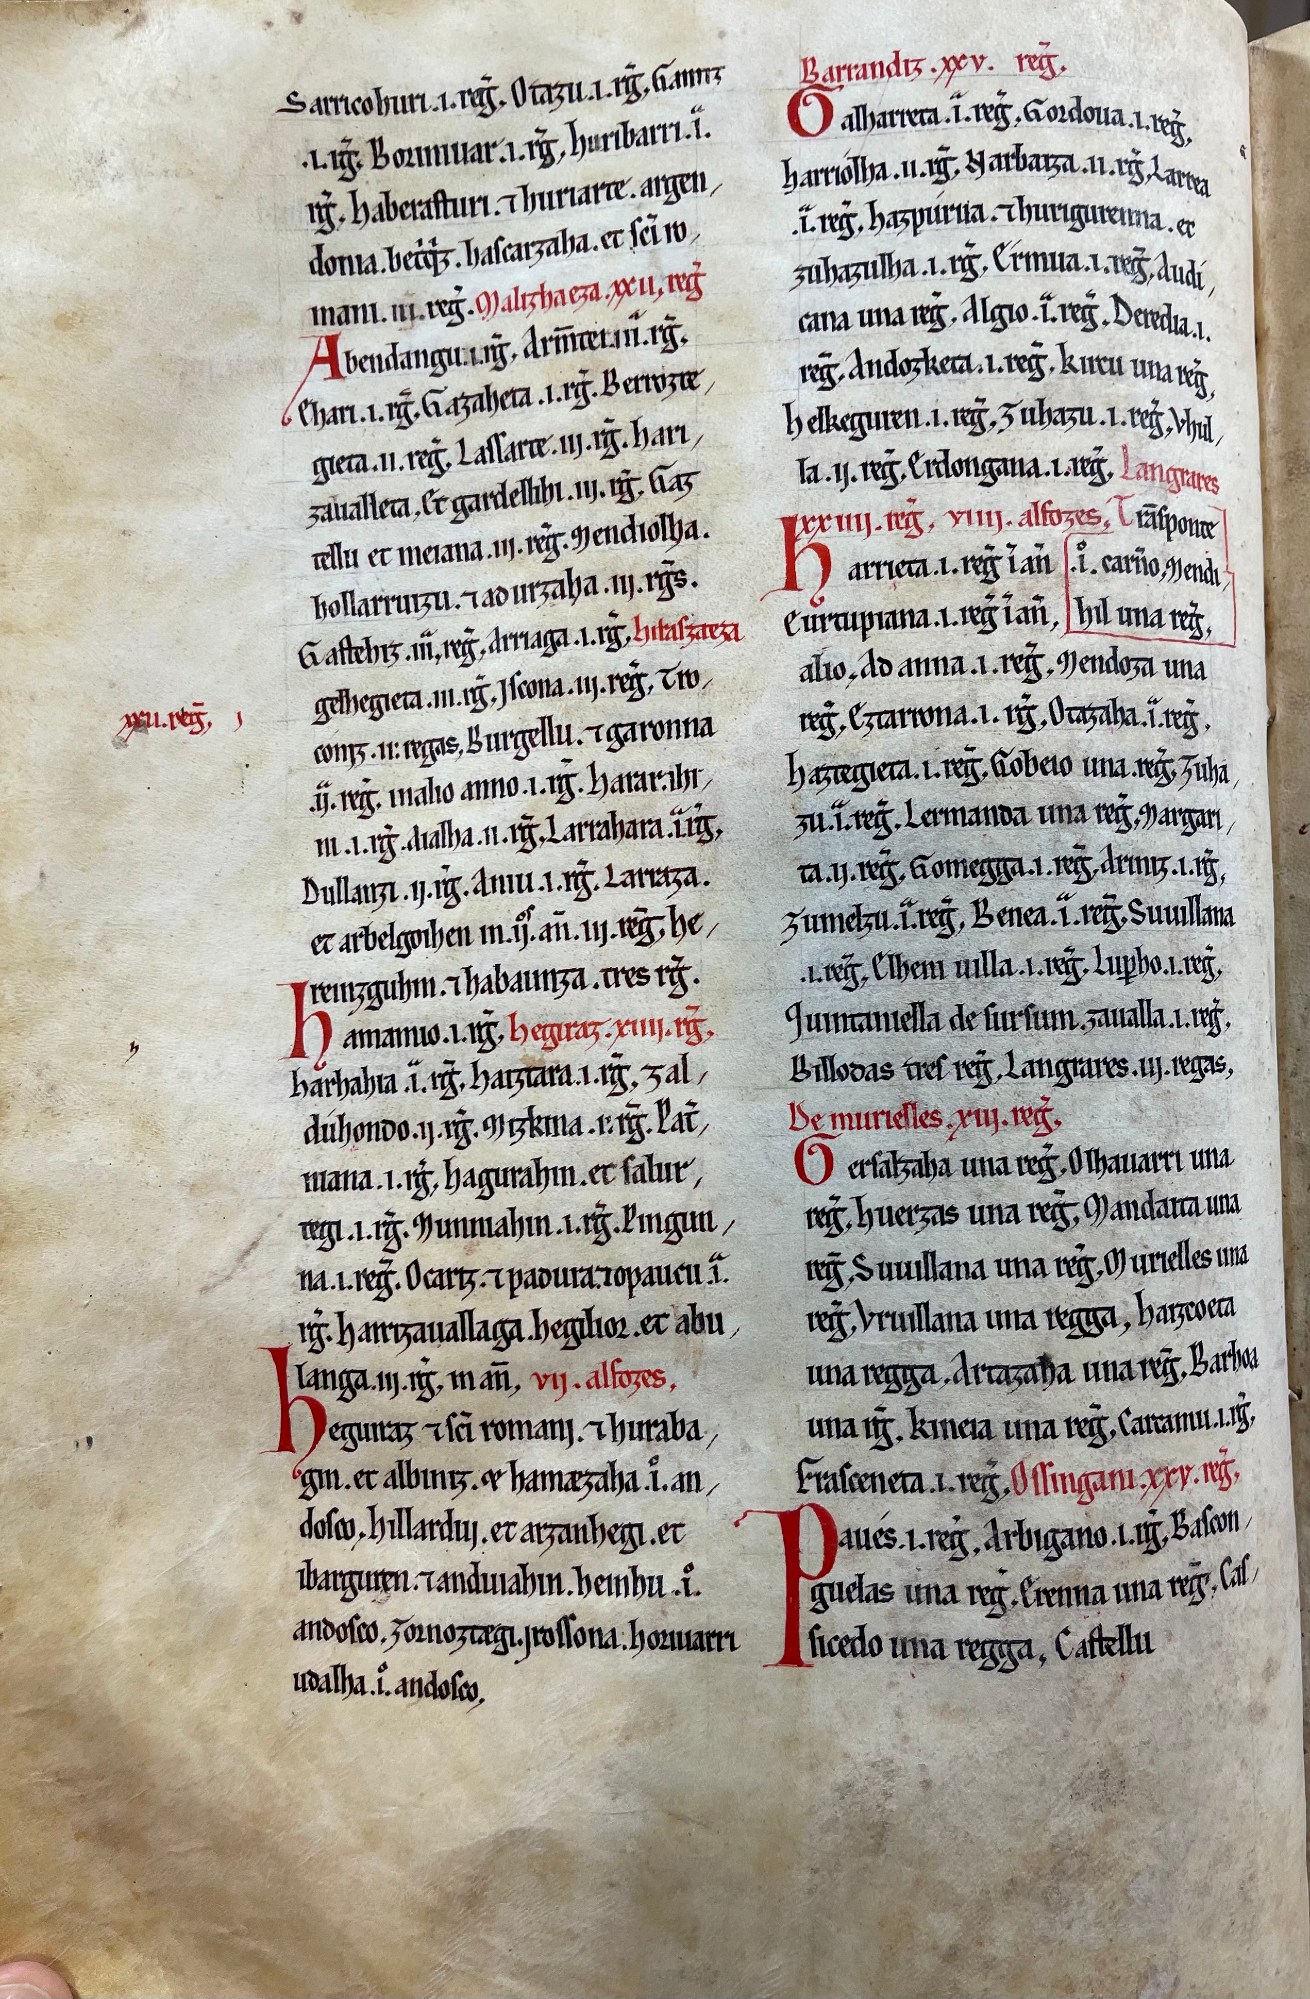 Sarricohuri .i. reg̃, Otazu .i. rg̃, Gamiz
.i. rg̃. Borinivar .i. rg̃, huribarri .ii.
rg̃, haberasturi. ⁊ huriarte. argen,
donia. betq̃z. hascarzaha. et sc̃i ro,
mani. iii. reg̃. Malizhaeza. xxu, reg̃
Abendangu .i. rg̃, Arm̃tei iii. rg̃.
Ehari .i. rg̃, Gazaheta .i. rg̃. Berrozte,
gieta .ii. reg̃, Lassarte .iii. rg̃. hari,
zaualleta, Et gardellihi .iii. rg̃, Gaz
tellu et meiana .iii. reg̃. Mendiolha.
hollarruizu. ⁊ adurzaha .iii. rg̃s.
Gastehiz .iii, reg̃, Arriaga .i. rg̃, hiraszaeza
xxu. reg̃,
gelhegieta .iii. rg̃, Jscona .iii. reg̃, Tro,
coniz .ii. regas, Burgellu. ⁊ garonna
.ij. reg̃. inalio anno .i. rg̃. harar. ihi,
ni .i. rg̃. dialha .ii. rg̃, Larrahara .ii. rg̃,
Dullanzi .ij. rg̃. Aniu .i. rg̃. Larraza.
et arbelgoihen in .ij. an̄. iij. reg̃, he,
reinzguhin. ⁊ habaunza. tres rg̃.
hamamio .i. rg̃, hegiraz. xiiii. rg̃,
harhahia .ii. rg̃, haiztara .i. rg̃, zal,
duhondo .ij. rg̃. Mizkina .i. rg̃. Pat̃,
niana .i. rg̃, hagurahin. et salur,
regi .i. rg̃. Munniahin .i. rg̃. Pingun,
na .i. reg̃. Ocariz. ⁊ padura. ⁊ opaucu .ii.
rg̃. harrizauallaga. hegilior. et abu,
langa .iij. rg̃, in an̄, vij. alfozes,
heguraz ⁊ sc̃i romanj. ⁊ huraba,
gin. et albiniz. & hamæzaha .i. an,
dosco, hillardui, et arzanhegi. et
ibarguren. ⁊ anduiahin. heinhu .i.
andosco. Zornoztægi. jrossona. horiuarri
udalha .i. andosco,
Barrandiz. xxv. reg̃,
Galharreta .ii. reg̃, Gordoua .i. reg̃,
harriolha .ii. rg̃, Narbaiza .ii. rg̃, Larrea
.ii. reg̃, hazpurua. ⁊ hurigurenna. et
zuhazulha .i. rg̃, Ermua .i. reg̃, Audi,
cana una reg̃, Algio .ii. reg̃, Deredia .i.
reg̃, Andozketa .i. reg̃, kircu una reg̃,
helkeguren .i. reg̃, Zuhazu .i. reg̃, Vhul,
la .ij. reg̃, Erdongana .i. reg̃, Langrares
xxiiii. reg̃, viiii. alfozes, Trãsponte
harrieta .i. reg̃ ĩ an̄ .i. carn̄o, Mendi,
Eurtupiana .i. reg̃ ĩ an̄, hil una reg̃,
alio, Adanna .i. reg̃, Mendoza una
reg̃, Eztarrona .i. rg̃, Otazaha .ii. reg̃,
haztegieta .i. reg̃, Gobeio una reg̃, Zuha,
zu .ii. reg̃, Lermanda una reg̃, Margari,
ta .ij. reg̃, Gomegga .i. reg̃, Ariniz .i. rg̃,
Zumelzu .ii. reg̃, Benea .ii. reg̃, Suuillana
.i. reg̃, Elheni uilla .i. reg̃, Lupho .i. reg̃,
Quintaniella de sursum zaualla .i. reg̃,
Billodas tres reg̃, Langrares .iij. regas,
De murielles. xiij. reg̃,
Gersalzaha una reg̃, Olhauarri una
reg̃, huerzas una reg̃, Mandaita una
reg̃, Suuillana una reg̃, Murielles una
reg̃, Vruillana una regga, haizcoeta
una regga, Artazaha una reg̃, Barhoa
una rg̃, kineia una reg̃, Carcamu .i. rg̃,
Frasceneta .i. reg̃, Ossingani. xxv. reg̃,
Paues .i. reg̃, Arbigano .i. rg̃, Bascon,
guelas una reg̃. Erenna una reg̃, Cas,
sicedo una regga, Castellu